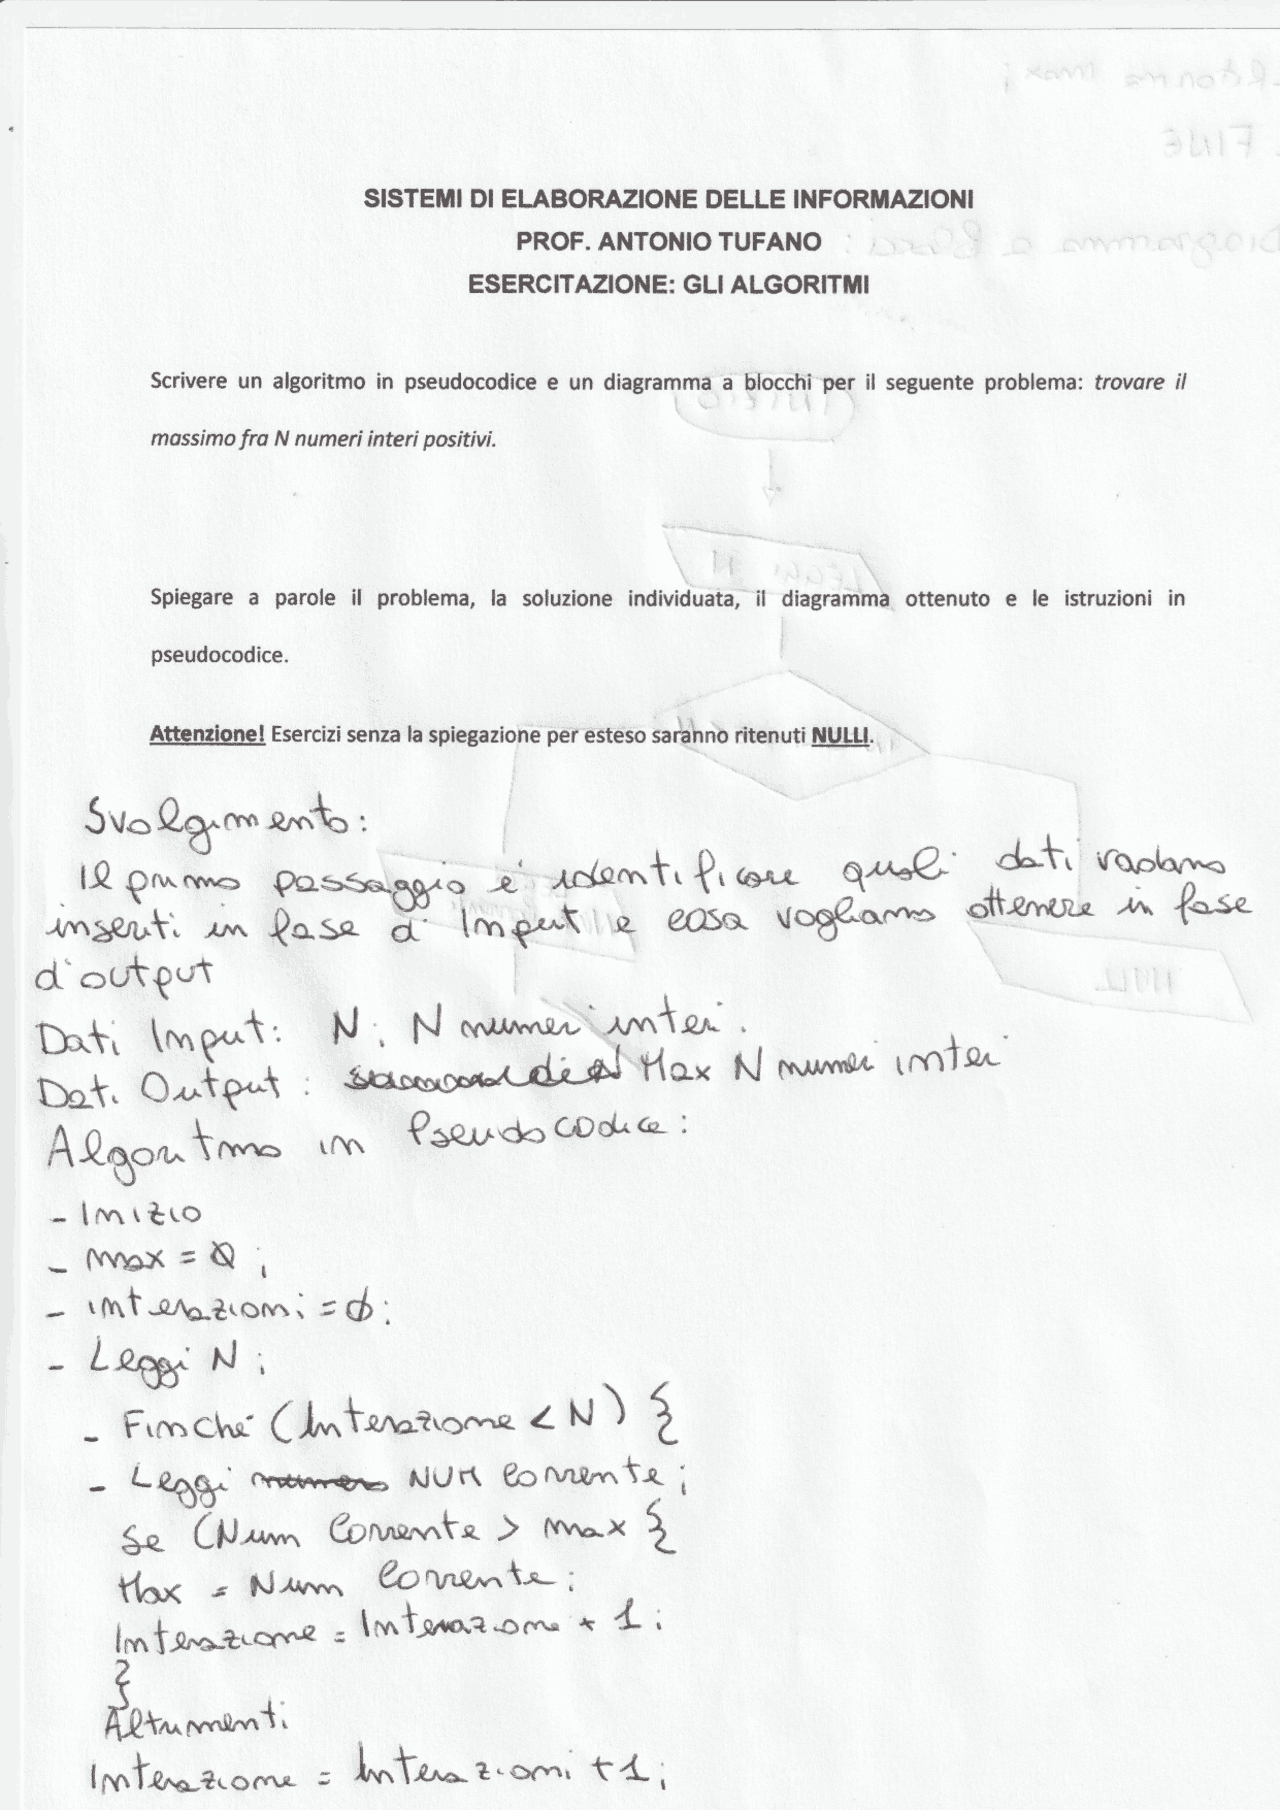 SISTEMI DI ELABORAZIONE DELLE INFORMAZIONI
PROF. ANTONIO TUFANO
ESERCITAZIONE: GLI ALGORITMI
Scrivere un algoritmo in pseudocodice e un diagramma a blocchi per il seguente problema: trovare il
massimo fra N numeri interi positivi.
Spiegare a parole il problema, la soluzione individuata, il diagramma ottenuto e le istruzioni in
pseudocodice.
Attenzione! Esercizi senza la spiegazione per esteso saranno ritenuti NULLI.
Svolgimento:
Il primo passaggio e' identificare quali dati vadano
inseriti in fase d' Imput e cosa vogliamo ottenere in fase
d'output
Dati Imput: N; N numeri interi.
Dati Output: Max N numeri interi
Algoritmo in Pseudocodice:
- Inizio
- max = 0;
- interazioni = 0;
- Leggi N;
- Finche' (Interazione < N) {
- Leggi numero NUM Corrente;
Se (Num Corrente > max {
Max = Num Corrente;
Interazione = Interazione + 1;
}
Altrimenti
Interazione = Interazioni + 1;